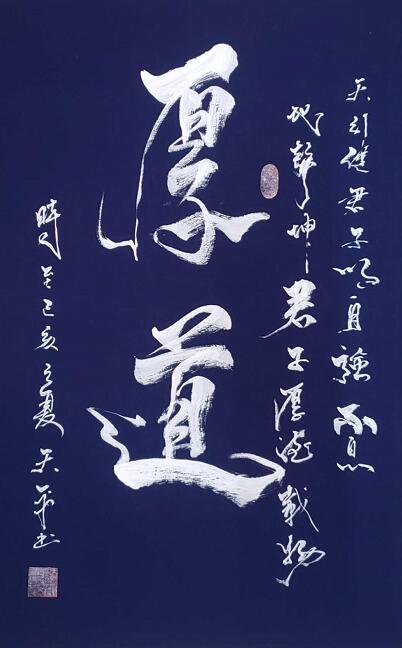 天行健君子以自強不息
地勢坤君子厚德載物
厚道
時己亥之夏天书